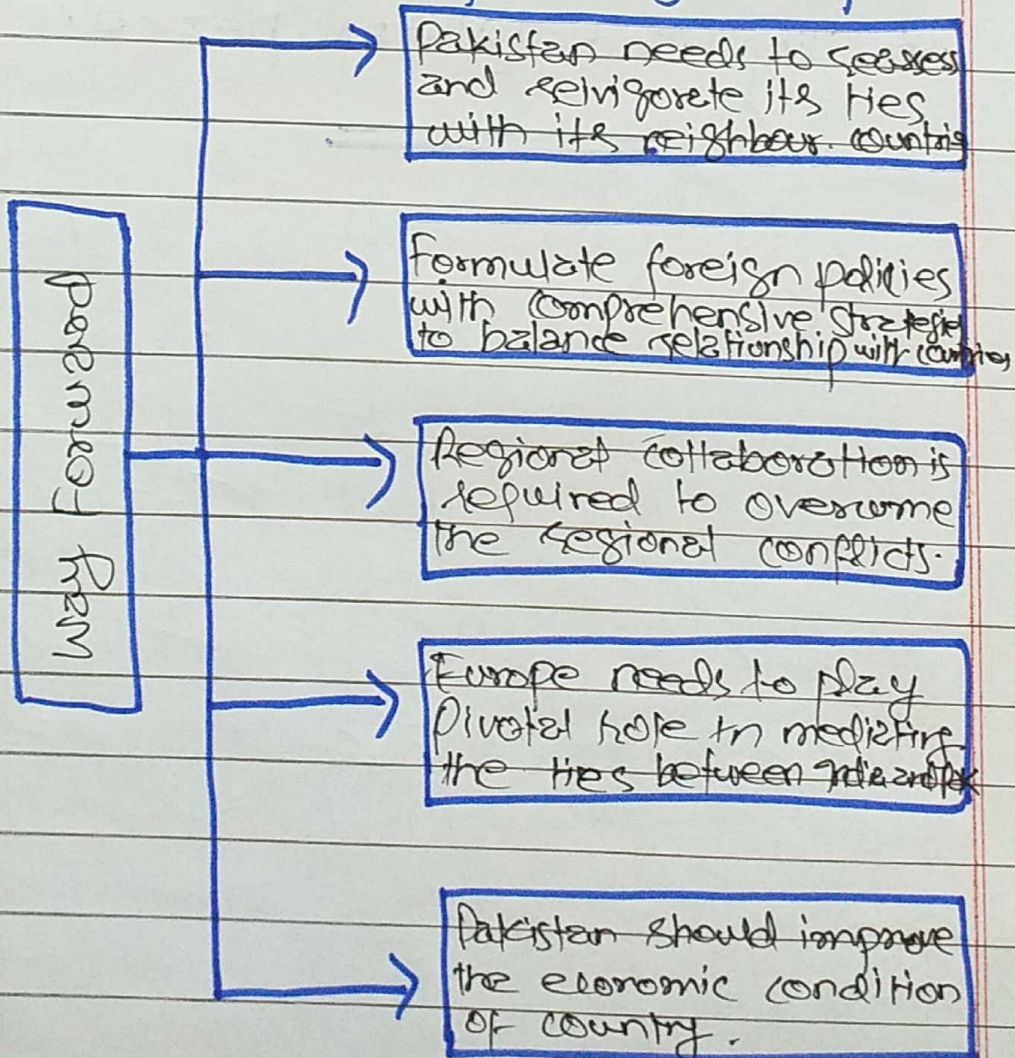 Way Forward
Pakistan needs to seassess
and reivigorate its ties
with its neighbour countries
Formulate foreign policies
with comprehensive strategies
to balance relationship with countries
Regional collaboration is
required to overcome
the regional conflicts.
Europe needs to play
Pivotal role in mediating
the ties between India and Pak
Pakistan should improve
the economic condition
of country.